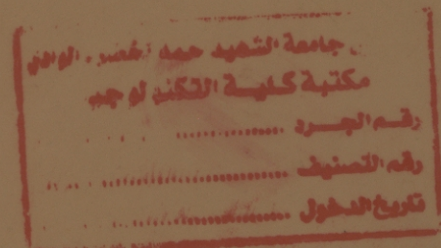 جامعة الشهيد حمه لخضر - الوادي
مكتبة كلية التكنولوجيا
رقم الجرد ....................
رقم التصنيف ....................
تاريخ الدخول ....................